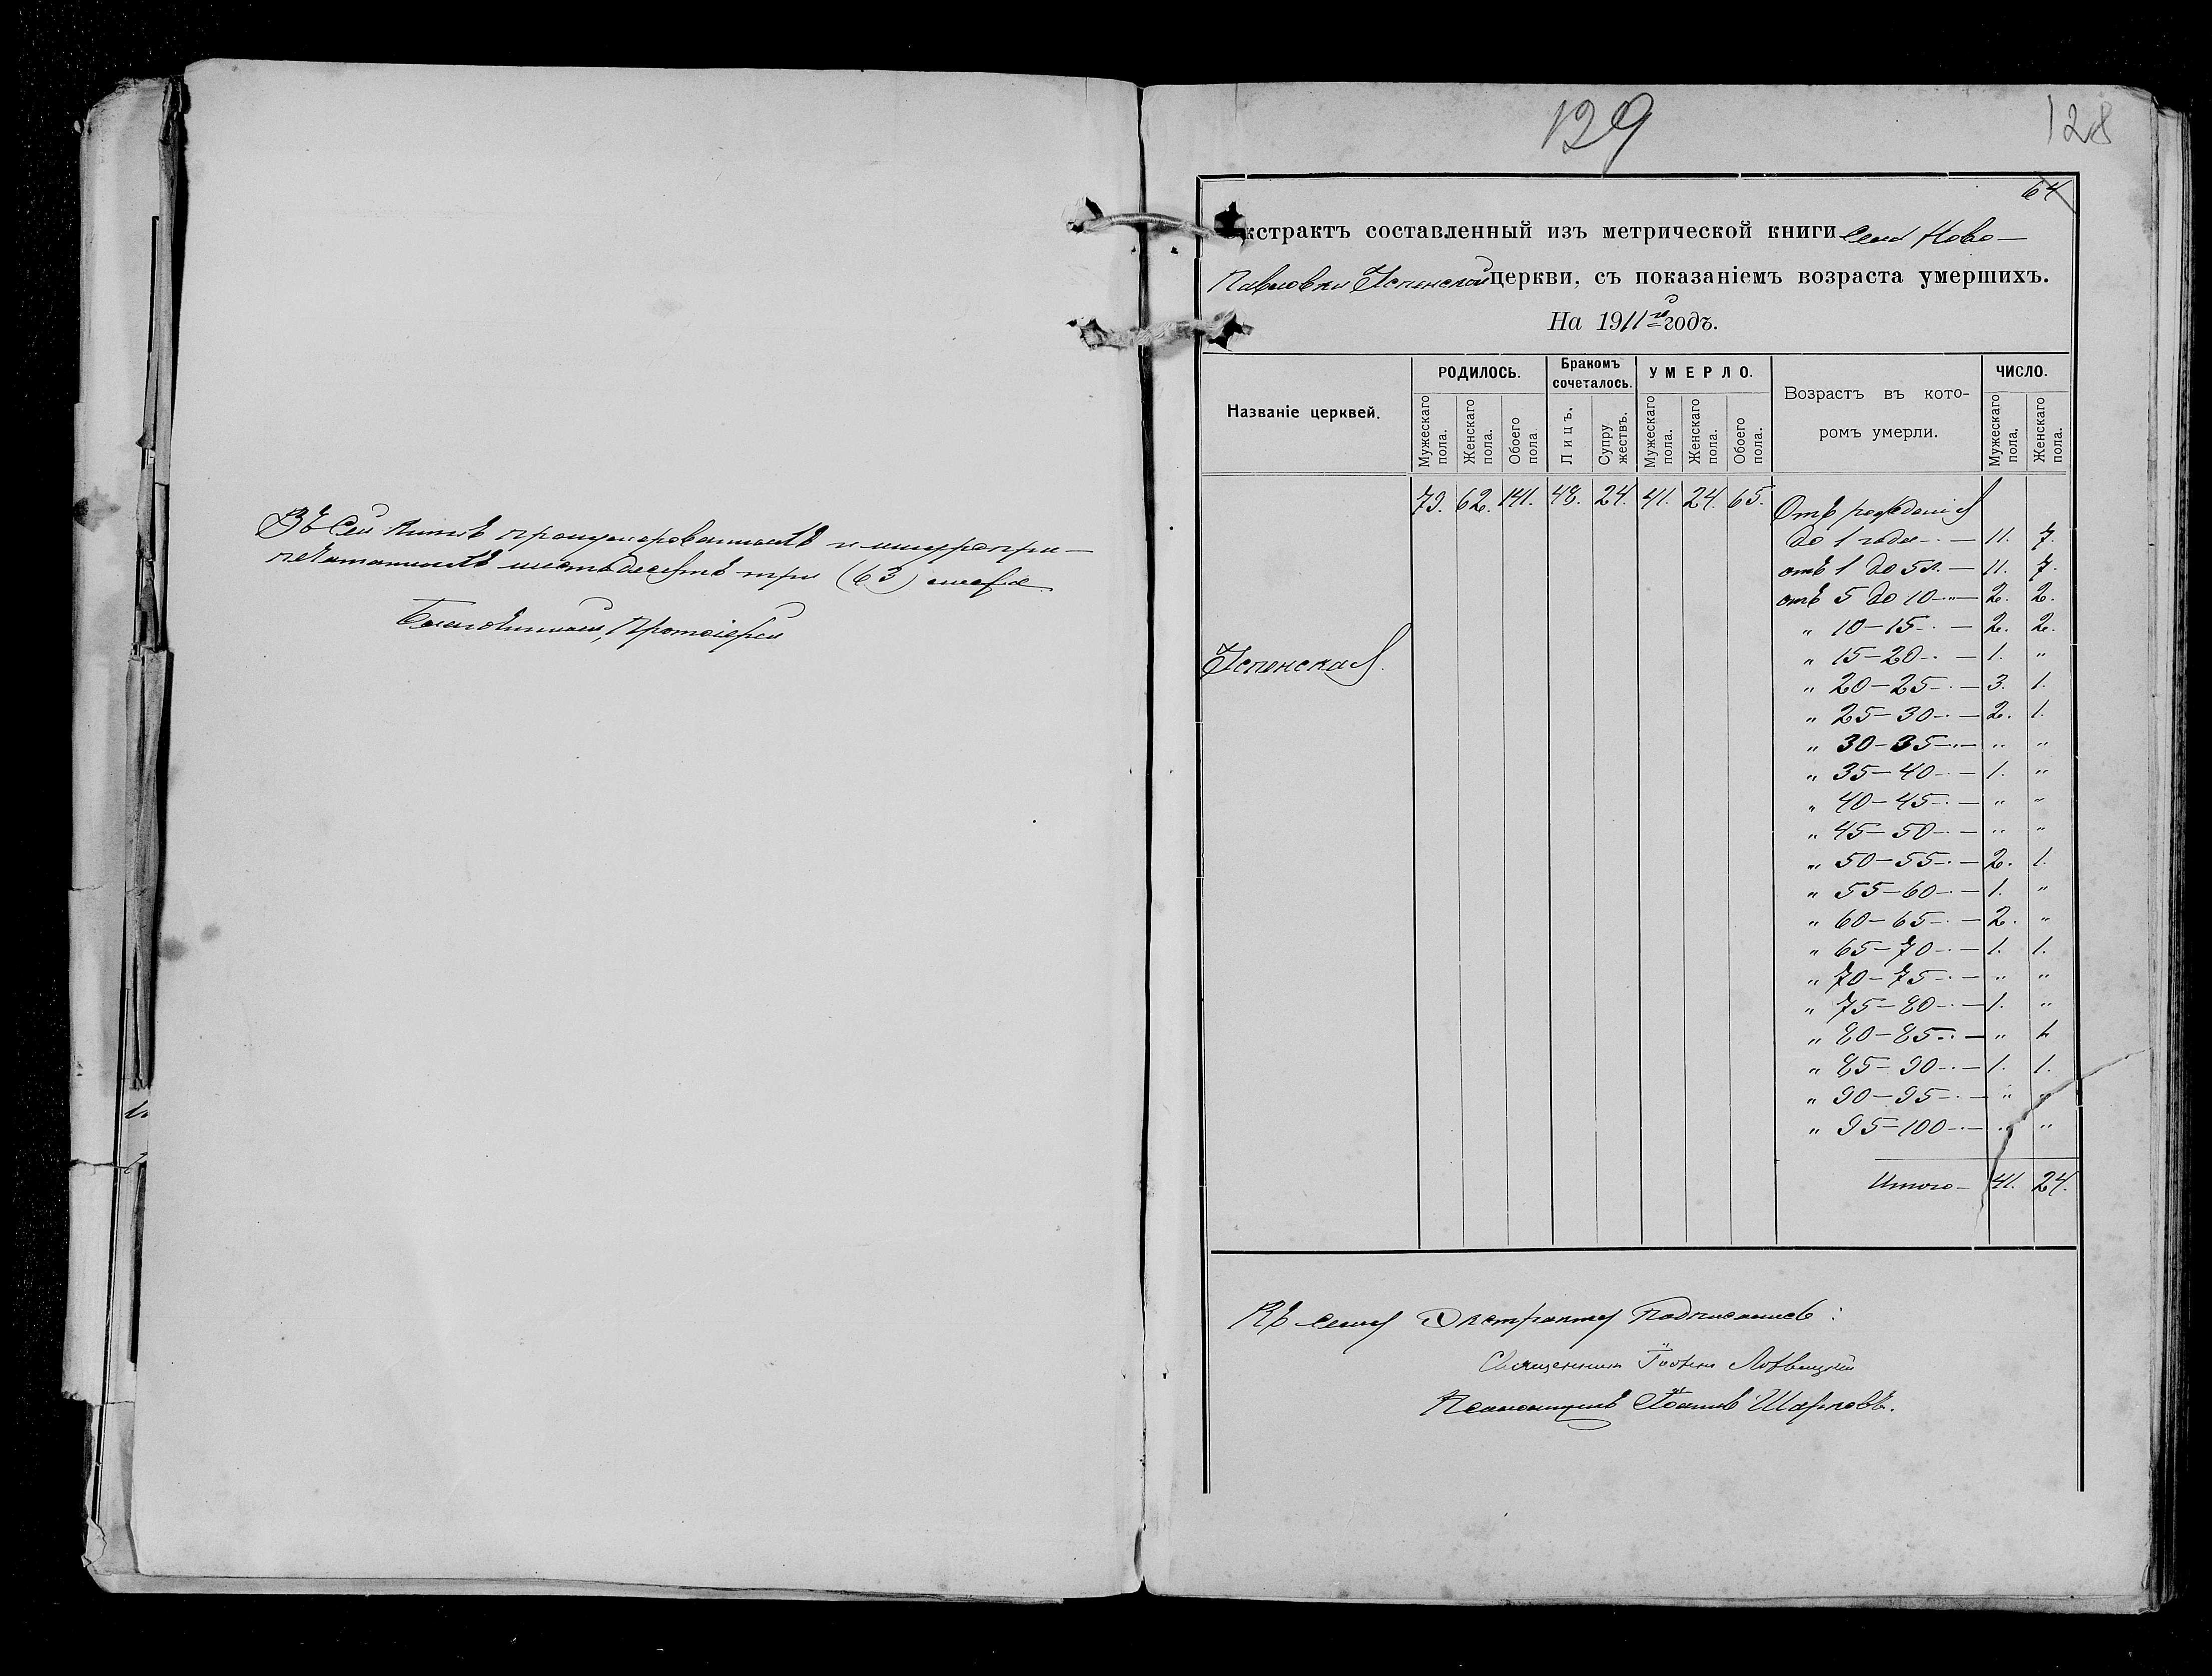 Въ сей книгѣ пронумерованныхъ и шнуропри-
печатанныхъ шестьдесятъ три (63) листа.
Благочинный, Протоіерей
129
128
64
Экстрактъ составленный изъ метрической книги села Ново-
Павловки Успенской церкви, съ показаніемъ возраста умершихъ.
На 1911й годъ.
Названіе церквей.
РОДИЛОСЬ.
Бракомъ сочеталось.
УМЕРЛО.
Возрастъ въ кото-
ромъ умерли.
ЧИСЛО.
Мужескаго пола.
Женскаго пола.
Обоего пола.
Лицъ.
Супружествъ.
Мужескаго пола.
Женскаго пола.
Обоего пола.
Мужескаго пола.
Женскаго пола.
79. 62. 141. 48. 24. 41. 24. 65.
Успенская.
Отъ рожденія
до 1 года - 11. 7.
отъ 1 до 5 л. - 11. 7.
отъ 5 до 10 - " - 2. 2.
" 10-15 - 2. 2.
" 15-20 - 1. "
" 20-25 - 3. 1.
" 25-30 - 2. 1.
" 30-35 - " "
" 35-40 - 1. "
" 40-45 - " "
" 45-50 - " "
" 50-55 - 2. 1.
" 55-60 - 1. "
" 60-65 - 2. "
" 65-70 - 1. 1.
" 70-75 - " "
" 75-80 - 1. "
" 80-85 - "
" 85-90 - 1. 1.
" 90-95 - " "
" 95-100 - " "
Итого - 41. 24.
Къ сему Экстракту подписались:
Священникъ
Псаломщикъ Іоаннъ Шарповъ.